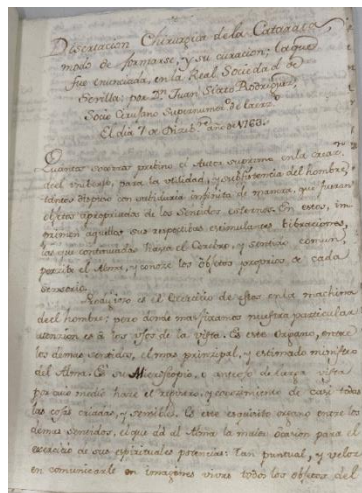 Disertacion Chirurgica de la Catarata
modo de formarse, y su curacion: la que
fue enunciada, en la Real Sociedad de
Sevilla: por Dn. Juan Sixto Rodriguez,
Socio Cirujano Supernumer.º de la
El dia 7 de Diziebre año de 1763.
Quantas previno el Autor supremo en la
del embuxo, para la utilidad, y subsistencia del hombre,
tantas dispuso con sabiduria infinita de manera, que fueran
objetos apropiados de los Sentidos externos. En estos, im
primen aquellas sus respectivas vibraciones,
las que continuadas hasta el Cerebro, y sentido comun,
percibe el Alma, y conoce los objetos proprios de cada
sensorio.
Prodijioso es el exercicio de estos en la machina
de el hombre: pero donde mas fixamos nuestra particular
atencion es à los usos de la vista. Es este Organo, entre
los demas sentidos, el mas principal, y estimado ministro
del Alma. Es su Miscroscopio, o antojo de larga vista
por cuio medio hace el registro, y conocimiento de casi todas
las cosas criadas, y sensibles. Es este organo entre los
demas sentidos, el que dà al Alma la maior ocasion para el
exercicio de sus espirituales potencias: tan puntual, y veloz
en comunicarle en imagenes vivas todos los objetos del